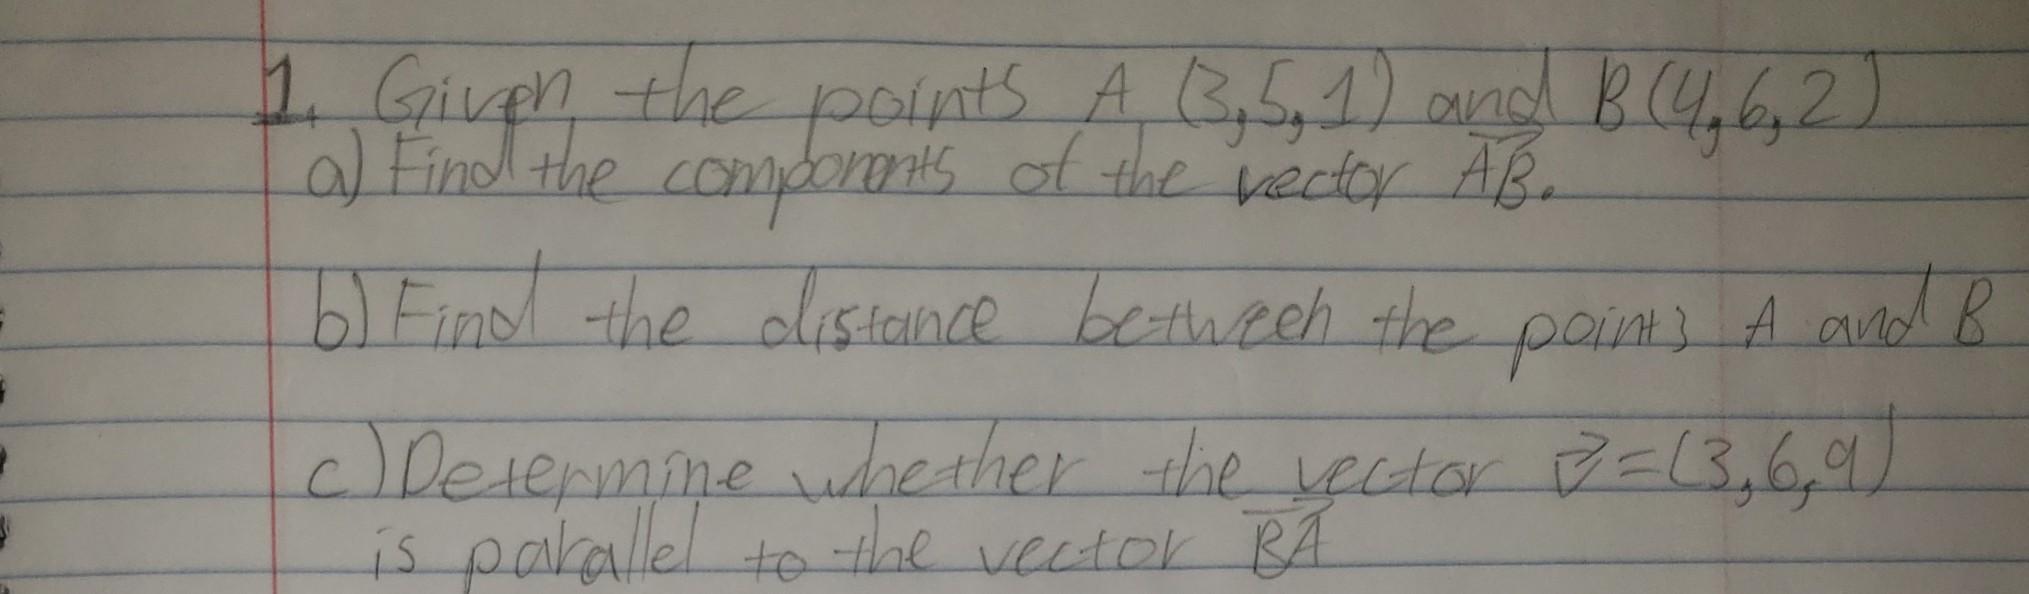 1. Given the points A (3,5,1) and B(4,6,2)
a) Find the components of the vector \overrightarrow{AB}.
b) Find the distance between the points A and B
c) Determine whether the vector \vec{v}=(3,6,9)
is parallel to the vector \overrightarrow{BA}